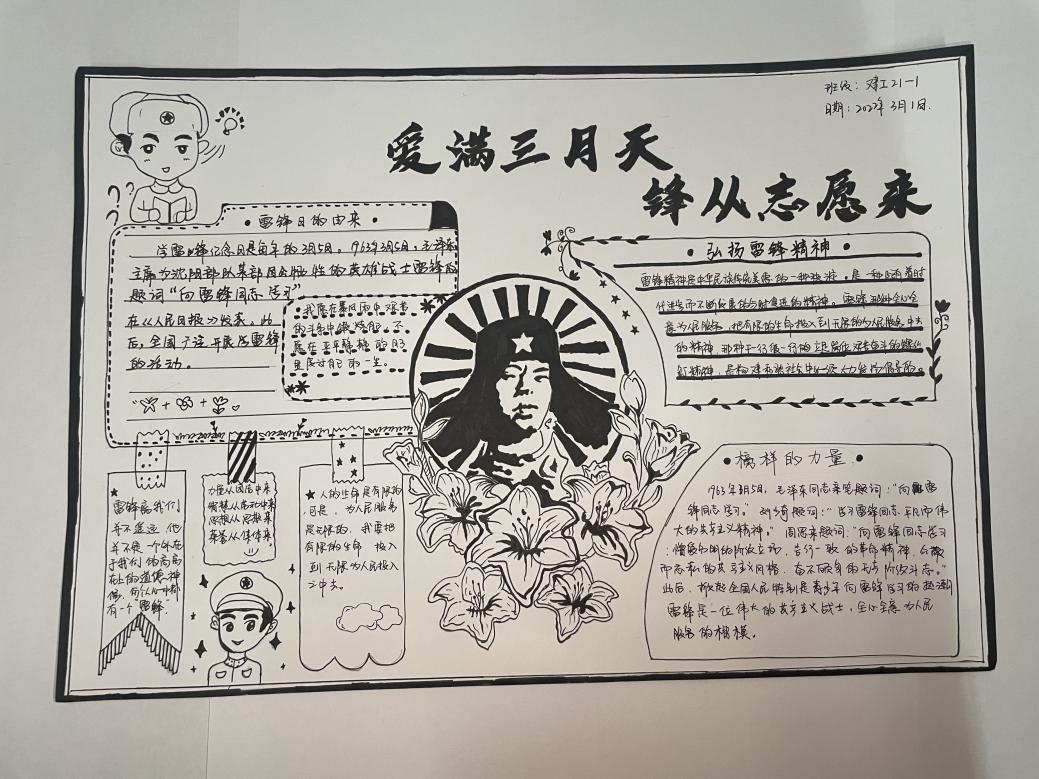 班级：建工21-1
日期：2022年3月1日.
爱满三月天
锋从志愿来
·雷锋日的由来·
学雷锋纪念日是每年的3月5日。1963年3月5日，毛泽东
主席为沈阳部队某部因公牺牲的英雄战士雷锋所
题词“向雷锋同志学习”
在《人民日报》发表。此
后，全国广泛开展学雷锋
的活动。
我愿在暴风雨中艰苦
的斗争中锻炼自己，不
愿在平平静静的日
里度过自己的一生。
·弘扬雷锋精神·
雷锋精神是中华民族传统美德的一种
代进步而不断发展的与时俱进的精神。雷锋那种全心全
意为人民服务，把有限的生命投入到无限的为人民服务中去
的精神，那种干一行爱一行的
钉精神，是构建和谐社会中
雷锋离我们
并不遥远，他
并不是一个外在
于我们的高高
在上的道德神
像，每个人心中都
有一个雷锋.
力量从团结中来
智慧从劳动中来
思想从 来
荣誉从集体来.
★人的生命是有限的
可是，为人民服务
是无限的，我要把
有限的生命 投入
到无限为人民投入
之中去。
·榜样的力量·
1963年3月5日，毛泽东同志亲笔题词：“向雷
锋同志学习。” 题词：“学习雷锋同志平凡而伟
大的共产主义精神。” 周恩来题词：“向雷锋同志学习
：憎爱分明的阶级立场，言行一致的革命精神，公
而忘私的共产主义风格，奋不顾身的无产阶级斗志。”
此后，掀起全国人民特别是青少年向雷锋学习的热潮
雷锋是一位伟大的共产主义战士，全心全意为人民
服务的楷模。